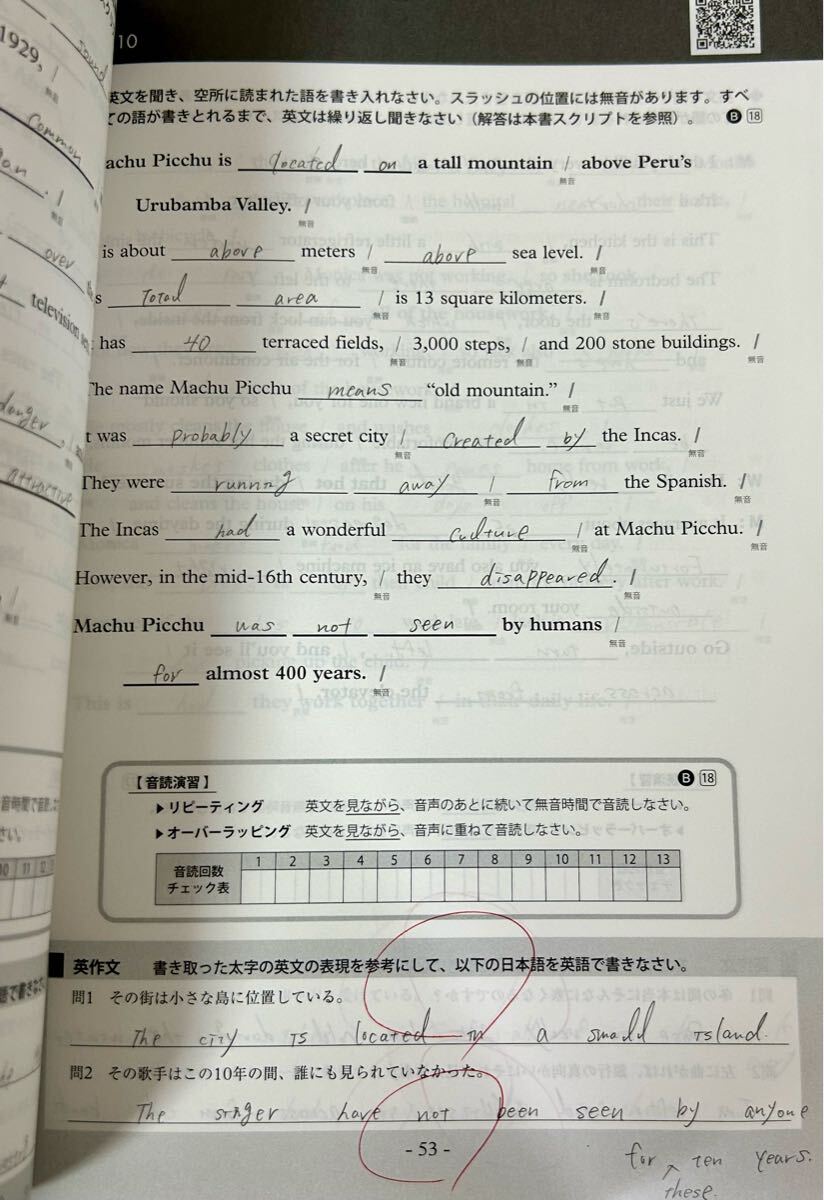 1929, /
無音
sound
common
over
television
danger
attractive
10
英文を聞き、空所に読まれた語を書き入れなさい。スラッシュの位置には無音があります。すべ
ての語が書きとれるまで、英文は繰り返し聞きなさい（解答は本書スクリプトを参照）。 B 18
achu Picchu is located on a tall mountain / above Peru's
無音
Urubamba Valley. /
無音
is about above meters / above sea level. /
無音 無音
s Total area / is 13 square kilometers. /
無音 無音
has 40 terraced fields, / 3,000 steps, / and 200 stone buildings. /
無音 無音 無音
The name Machu Picchu means “old mountain.” /
無音
t was probably a secret city / created by the Incas. /
無音 無音
They were running away / from the Spanish. /
無音 無音
The Incas had a wonderful culture / at Machu Picchu. /
無音 無音
However, in the mid-16th century, / they disappeared. /
無音 無音
Machu Picchu was not seen by humans /
無音
for almost 400 years. /
無音
【音読演習】 B 18
▶リピーティング 英文を見ながら、音声のあとに続いて無音時間で音読しなさい。
▶オーバーラッピング 英文を見ながら、音声に重ねて音読しなさい。
音読回数 1 2 3 4 5 6 7 8 9 10 11 12 13
チェック表
英作文 書き取った太字の英文の表現を参考にして、以下の日本語を英語で書きなさい。
問1 その街は小さな島に位置している。
The city is located in a small island.
問2 その歌手はこの10年の間、誰にも見られていなかった。
The singer have not been seen by anyone
for these ten years.
- 53 -